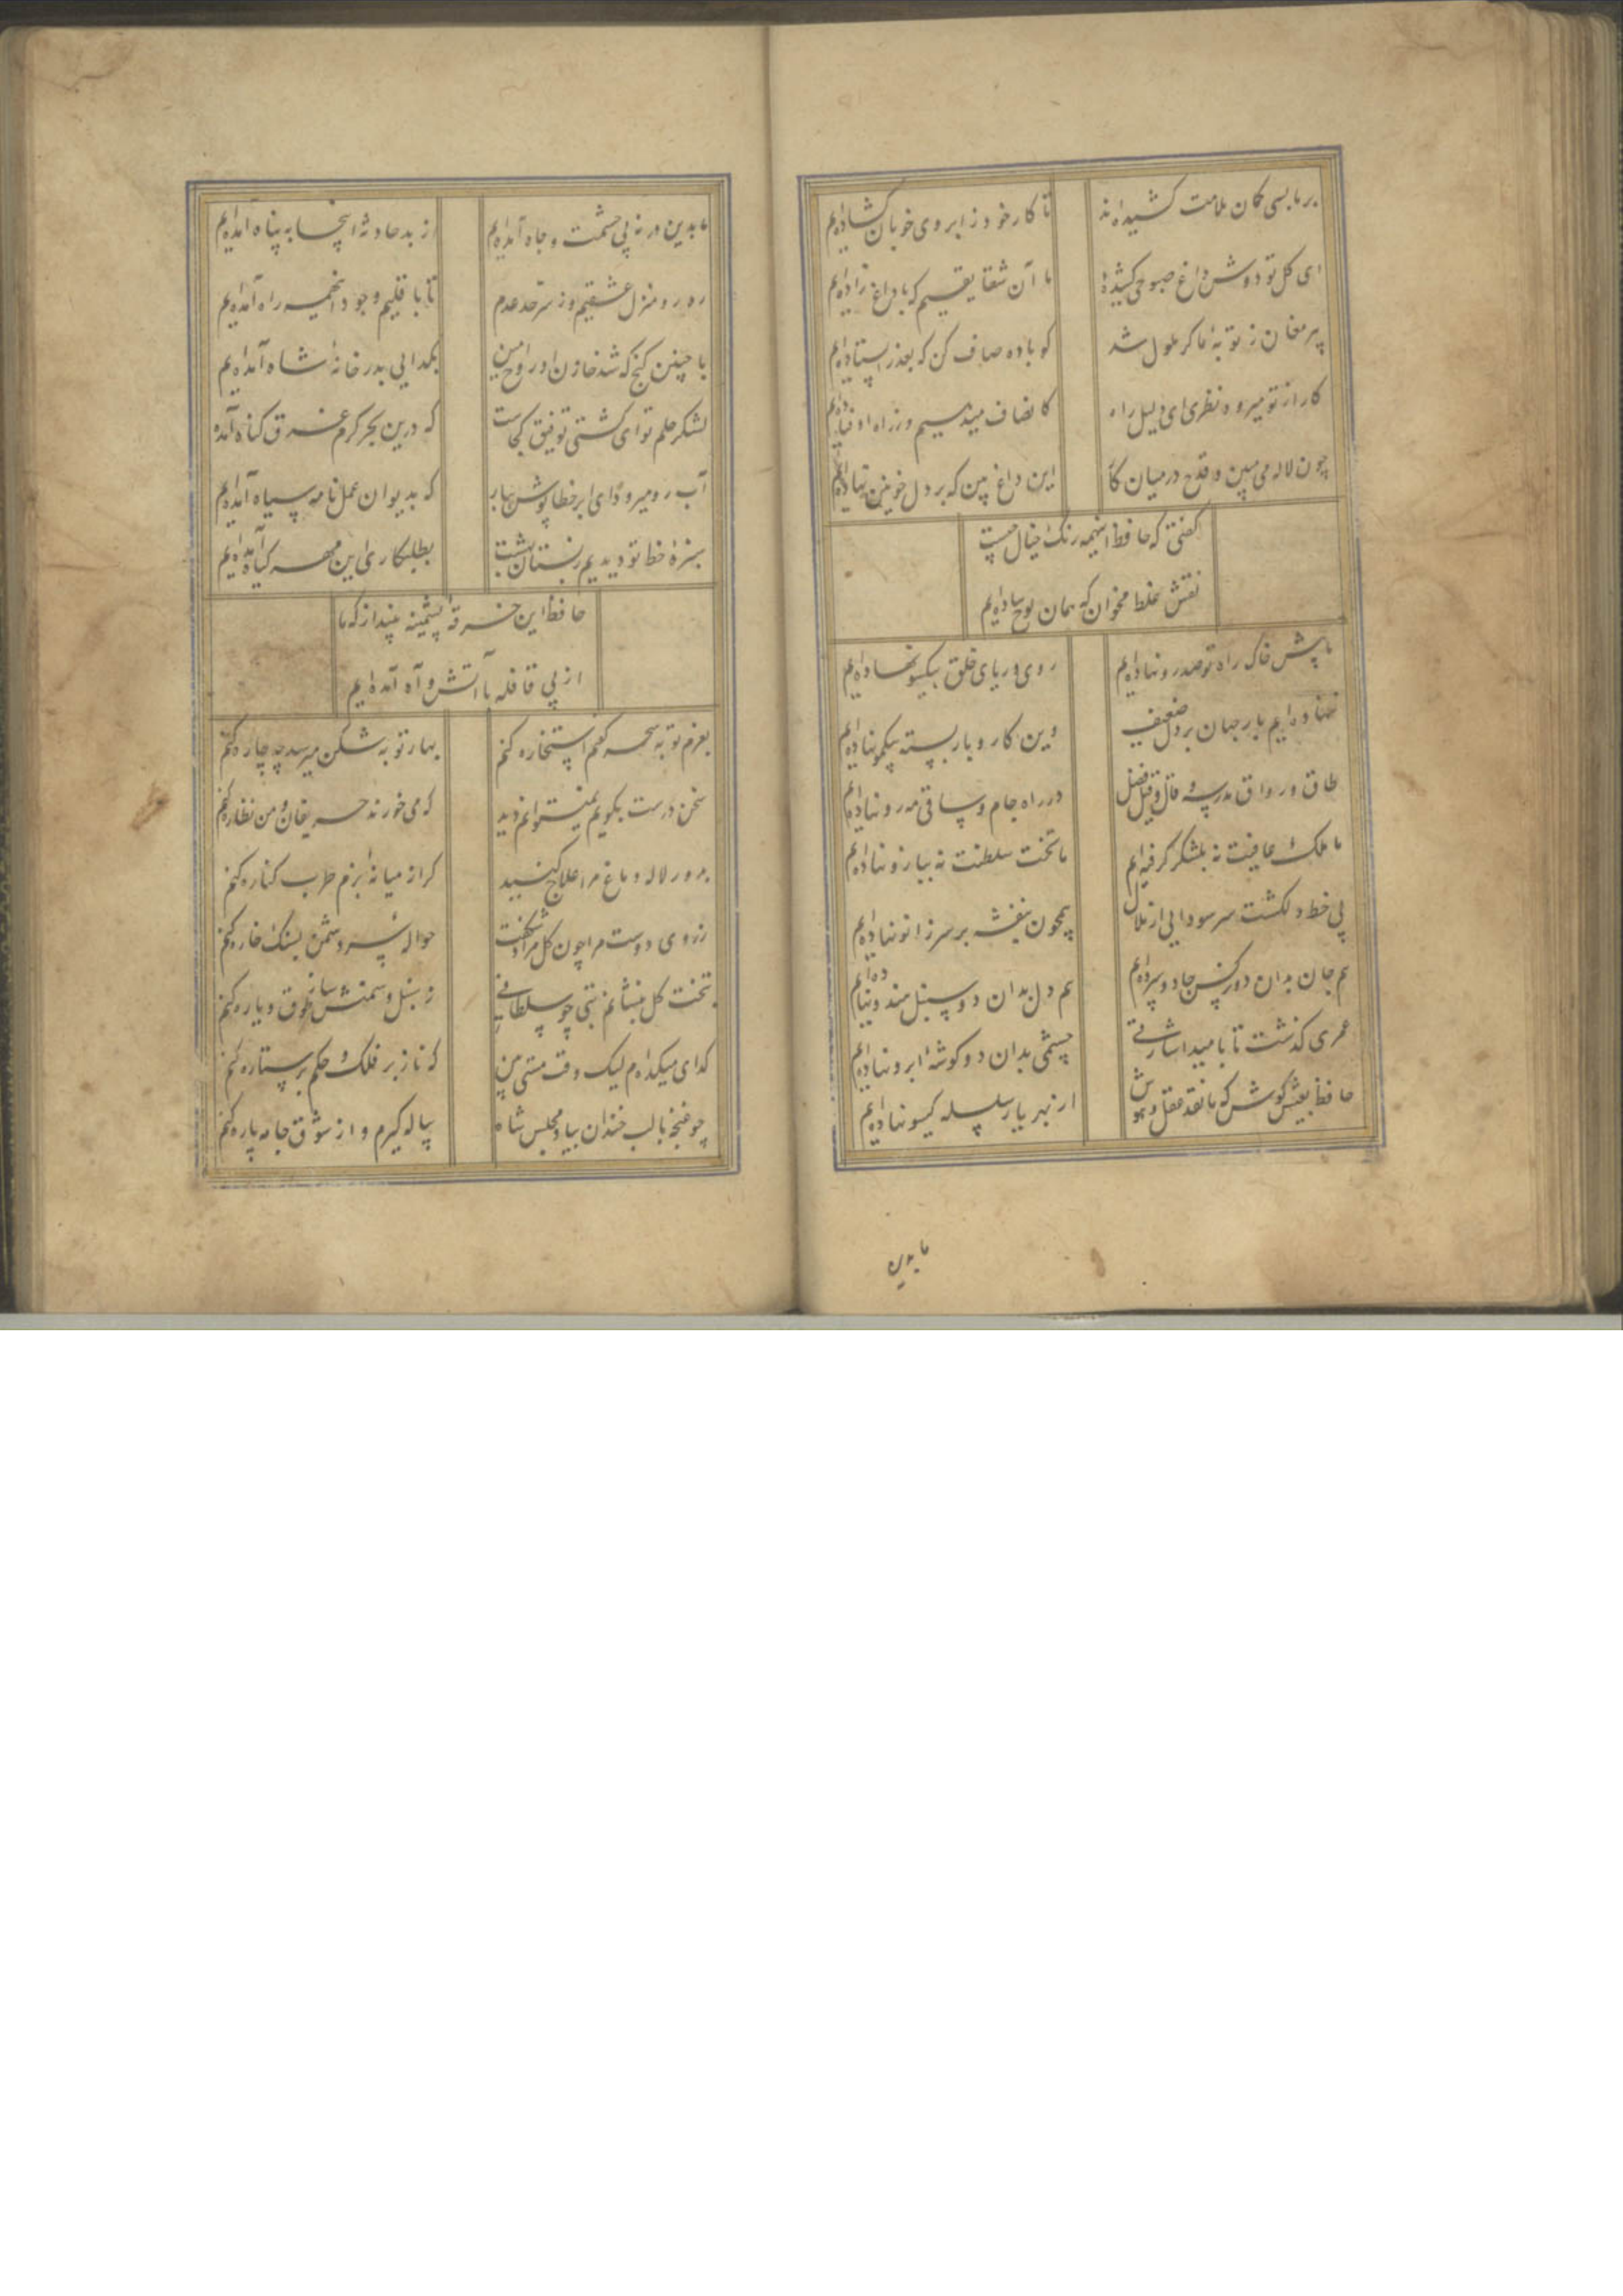 بر ما بسی کمان ملامت کشیده‌اند
تا کار خود ز ابروی خوبان کشاده‌ایم
ای کل تو دوش داغ صبوحی کشیدهٔ
ما آن شقایقیم که با داغ زاده‌ایم
پیر مغان ز توبهٔ ما کر ملول شد
کو باده صاف کن که بعذر ایستاده‌ایم
کار از تو میرود نظری ای دلیل راه
کانصاف میدهیم و ز راه اوفتاده‌ایم
چون لاله می مبین و قدح در میان کار
این داغ بین که بر دل خونین نهاده‌ایم
کفتی که حافظ اینهمه رنک خیال چیست
نقش غلط مخوان که همان لوح ساده‌ایم
ما پیش خاک راه تو صد رو نهاده‌ایم
روی و ریای خلق بیکسو نهاده‌ایم
ننهاده‌ایم بار جهان بر دل ضعیف
وین کار و بار بسته بیکمو نهاده‌ایم
طاق و رواق مدرسه و قال و قیل فضل
در راه جام و ساقی مه‌رو نهاده‌ایم
ما ملک عافیت نه بلشکر کرفته‌ایم
ما تخت سلطنت نه ببازو نهاده‌ایم
بی خط دلکشت سر سودایی از ملال
همچون بنفشه بر سر زانو نهاده‌ایم
هم جان بدان دو نرکس جادو سپرده‌ایم
هم دل بدان دو سنبل هندو نهاده‌ایم
عمری کذشت تا بامید اشارتی
چشمی بدان دو کوشهٔ ابرو نهاده‌ایم
حافظ بعیش کوش که ما نقد عقل و هوش
از بهر یار سلسله کیسو نهاده‌ایم
ما بدین
ما بدین در نه پی حشمت و جاه آمده‌ایم
از بد حادثه اینجا به پناه آمده‌ایم
ره رو منزل عشقیم و ز سرحد عدم
تا باقلیم وجود اینهمه راه آمده‌ایم
با چنین کنج که شد خازن او روح امین
بکدایی بدر خانهٔ شاه آمده‌ایم
لنکر حلم تو ای کشتی توفیق کجاست
که درین بحر کرم غرق کناه آمده
آب رو میرود ای ابر خطاپوش ببار
که بدیوان عمل نامه سیاه آمده‌ایم
سبزهٔ خط تو دیدیم ز بستان بهشت
بطلبکاری این مهر کیاه آمده‌ایم
حافظ این خرقهٔ پشمینه بینداز که ما
از پی قافله با آتش و آه آمده‌ایم
بعزم توبه سحر کفتم استخاره کنم
بهار توبه شکن میرسد چه چاره کنم
سخن درست بکویم نمیتوانم دید
که می خورند حریفان و من نظاره کنم
بدور لاله دماغ مرا علاج کنید
کر از میانهٔ بزم طرب کناره کنم
ز روی دوست مرا چون کل مراد شکفت
حوالهٔ سر دشمن بسنک خاره کنم
بتخت کل بنشانم بتی چو سلطانی
ز سنبل و سمنش ساز طوق و یاره کنم
کدای میکده‌ام لیک وقت مستی بین
که ناز بر فلک و حکم بر ستاره کنم
چو غنچه با لب خندان بیاد مجلس شاه
پیاله کیرم و از شوق جامه پاره کنم